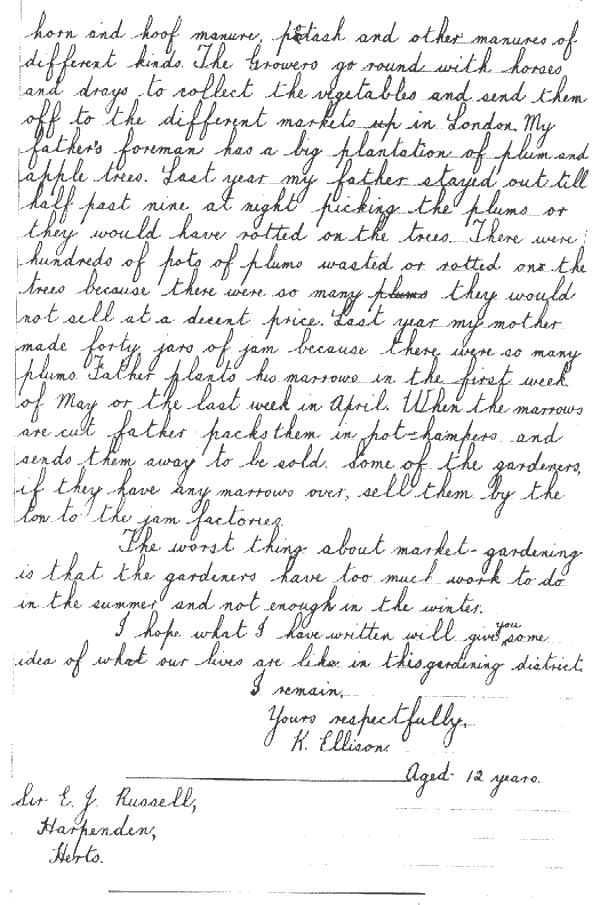 horn and hoof manure, potash and other manures of
different kinds. The Growers go round with horses
and drays to collect the vegetables and send them
off to the different markets up in London. My
father's foreman has a big plantation of plum and
apple trees. Last year my father stayed out till
half past nine at night picking the plums or
they would have rotted on the trees. There were
hundreds of pots of plums wasted or rotted on the
trees because there were so many plums they would
not sell at a decent price. Last year my mother
made forty jars of jam because there were so many
plums. Father plants his marrows in the first week
of May or the last week in April. When the marrows
are cut father packs them in pot-hampers and
sends them away to be sold. some of the gardeners,
if they have any marrows over, sell them by the
ton to the jam factories.
The worst thing about market-gardening
is that the gardeners have too much work to do
in the summer and not enough in the winter.
I hope what I have written will give you some
idea of what our lives are like in this gardening district.
I remain,
Yours respectfully,
K. Ellison.
Aged 12 years.
Sir E. J. Russell,
Harpenden,
Herts.